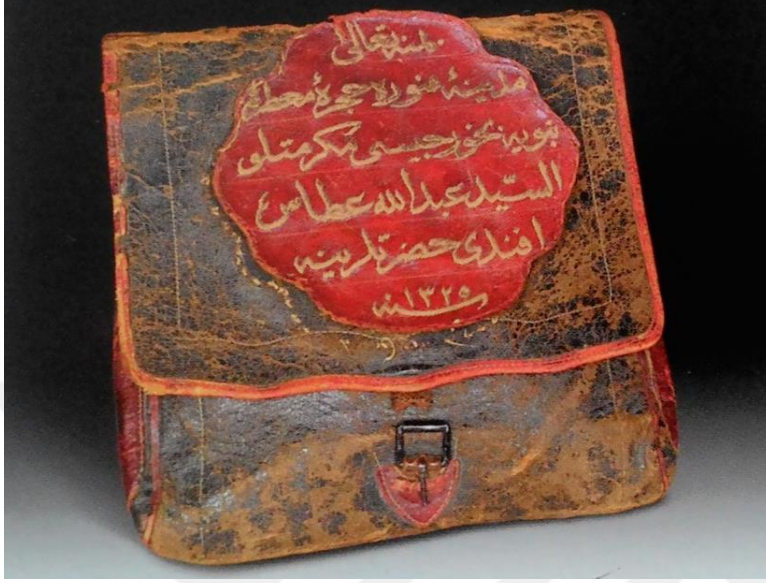 بمنه تعالى
مدينهٔ منوره حجرهٔ معطرهٔ
نبويه بخورجيسى مكرمتلو
السيّد عبدالله عطاس
افندى حضرتلرينه
سنه ١٣٢٥